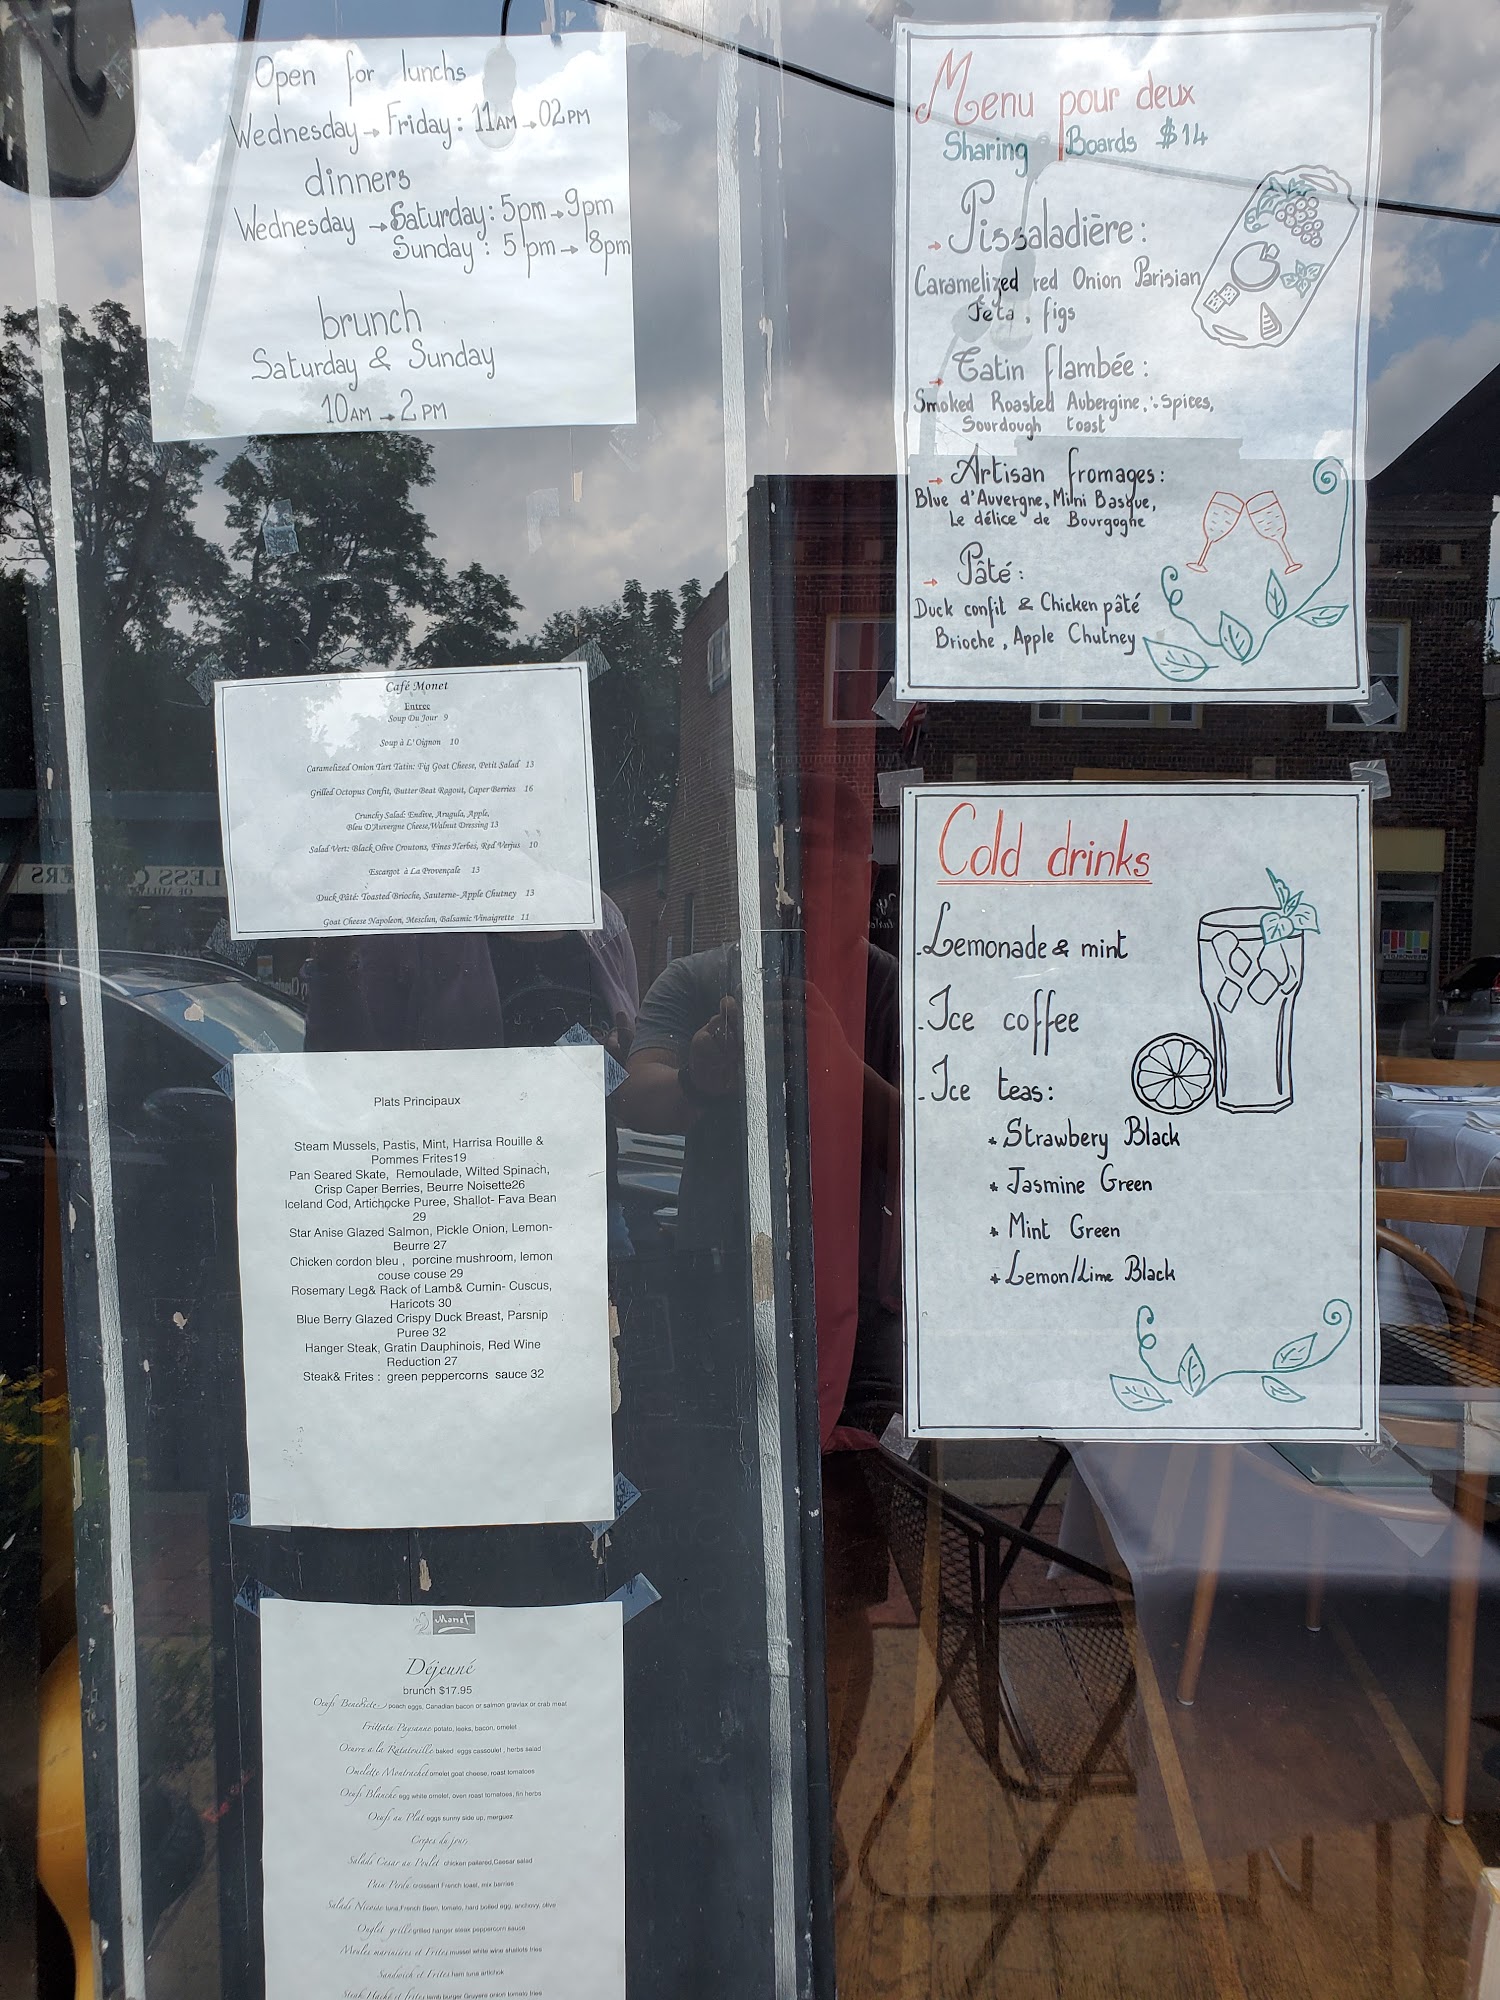 Open for lunchs
Wednesday → Friday: 11AM → 02PM
dinners
Wednesday → Saturday: 5pm → 9pm
Sunday: 5pm → 8pm
brunch
Saturday & Sunday
10AM → 2PM
Café Monet
Entree
Soup Du Jour 9
Soup à L'Oignon 10
Caramelized Onion Tart Tatin: Fig Goat Cheese, Petit Salad 13
Grilled Octopus Confit, Butter Beat Ragout, Caper Berries 16
Crunchy Salad: Endive, Arugula, Apple,
Bleu D'Auvergne Cheese,Walnut Dressing 13
Salad Vert: Black Olive Croutons, Fines Herbes, Red Verjus 10
Escargot à La Provençale 13
Duck Pâté: Toasted Brioche, Sauterne- Apple Chutney 13
Goat Cheese Napoleon, Mesclun, Balsamic Vinaigrette 11
Plats Principaux
Steam Mussels, Pastis, Mint, Harrisa Rouille &
Pommes Frites19
Pan Seared Skate, Remoulade, Wilted Spinach,
Crisp Caper Berries, Beurre Noisette26
Iceland Cod, Artichocke Puree, Shallot- Fava Bean
29
Star Anise Glazed Salmon, Pickle Onion, Lemon-
Beurre 27
Chicken cordon bleu , porcine mushroom, lemon
couse couse 29
Rosemary Leg& Rack of Lamb& Cumin- Cuscus,
Haricots 30
Blue Berry Glazed Crispy Duck Breast, Parsnip
Puree 32
Hanger Steak, Gratin Dauphinois, Red Wine
Reduction 27
Steak& Frites : green peppercorns sauce 32
Monet
Déjeuné
brunch $17.95
Oeufs Benedicte poach eggs, Canadian bacon or salmon gravlax or crab meat
Frittata Paysanne potato, leeks, bacon, omelet
Oeurre a la Ratatouille baked eggs cassoulet , herbs salad
Omelette Montrachet omelet goat cheese, roast tomatoes
Oeufs Blanche egg white omelet, oven roast tomatoes, fin herbs
Oeufs au Plat eggs sunny side up, merguez
Crepes du jour,
Salade Cesar au Poulet chicken paillared,Caesar salad
Pain Perdu croissant French toast, mix berries
Salade Nicoise tuna,French Been, tomato, hard boiled egg, anchovy, olive
Onglet grille grilled hanger steak peppercorn sauce
Moules marinieres et Frites mussel white wine shallots fries
Sandwich et Frites ham tuna artichok
Steak Haché et frites lamb burger Gruyere onion tomato fries
Menu pour deux
Sharing Boards $14
→ Pissaladière:
Caramelized red Onion Parisian
Feta, figs
→ Tatin flambée:
Smoked Roasted Aubergine, Spices,
Sourdough toast
→ Artisan fromages:
Blue d'Auvergne, Mini Basque,
Le délice de Bourgogne
→ Pâté:
Duck confit & Chicken pâté
Brioche, Apple Chutney
Cold drinks
- Lemonade & mint
- Ice coffee
- Ice teas:
* Strawbery Black
* Jasmine Green
* Mint Green
* Lemon/Lime Black